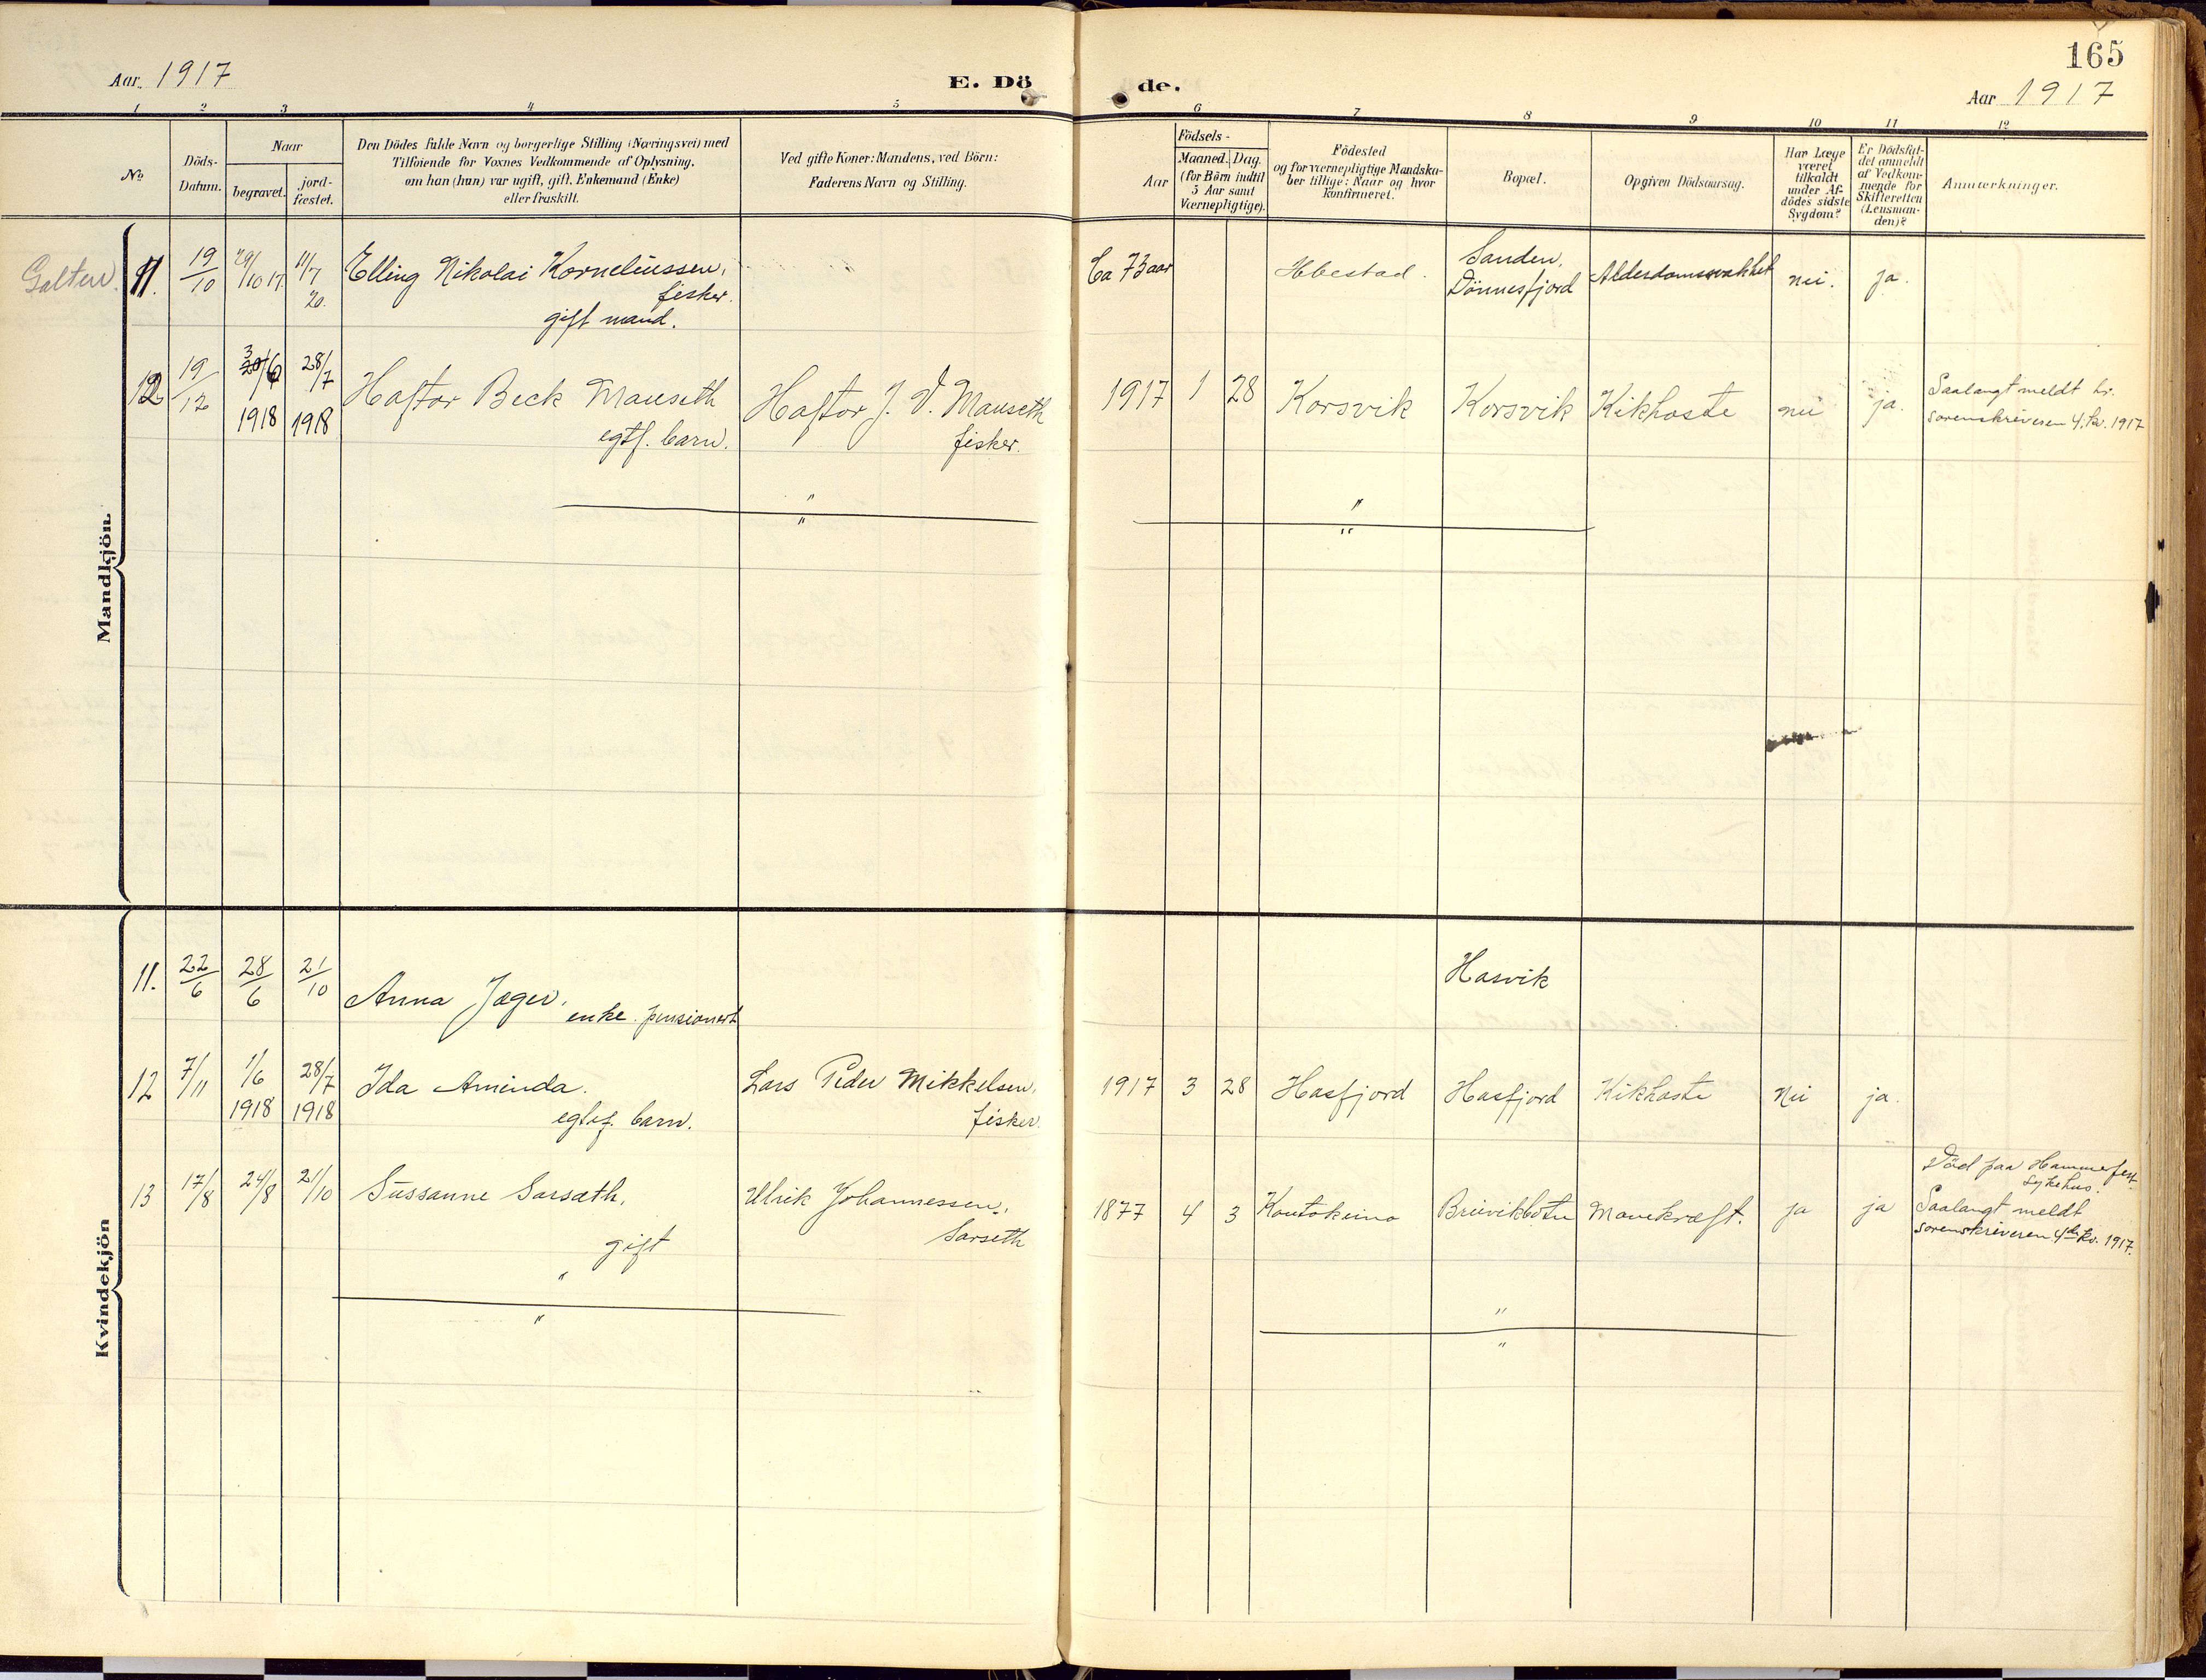 165
Aar 1917
E. Dö
de.
Aar 1917
1 2 3 4 5 6 7 8 9 10 11 12
No
Döds-
Datum.
Naar
begravet.
jord-
fæstet.
Den Dödes fulde Navn og borgerlige Stilling (Næringsvei) med
Tilföiende for Voxnes Vedkommende af Oplysning,
om han (hun) var ugift, gift, Enkemand (Enke)
eller fraskilt.
Ved gifte Koner: Mandens, ved Börn:
Faderens Navn og Stilling.
Födsels-
Aar
Maaned. Dag.
(for Börn indtil
5 Aar samt
Værnepligtige).
Födested
og for værnepligtige Mandska-
ber tillige: Naar og hvor
konfirmeret.
Bopæl.
Opgiven Dödsaarsag.
Har Læge
været
tilkaldt
under Af-
dödes sidste
Sygdom?
Er Dödsfal-
det anmeldt
af Vedkom-
mende for
Skifteretten
(Lensman-
den)?
Anmærkninger.
Mandkjön.
Galten. 11. 19/10 29/10 17. 11/7 20. Elling Nikolai Korneliussen,
fisker.
gift mand.
Ca 73 aar Ibestad. Sanden,
Dönnesfjord Alderdomssvakhet nei. ja.
12. 19/12 3/6 1918 28/7 1918 Haftor Beck Mauseth
egtf. barn.
Haftor J. V. Mauseth
fisker.
1917 1 28 Korsvik Korsvik Kikhoste nei ja.
Saalangt meldt hr.
sorenskriveren 4. kv. 1917
Kvindekjön
11. 22/6 28/6 21/10 Anna Jæger,
enke. pensionert
Hasvik
12 7/11 1/6 1918 28/7 1918 Ida Aminda.
egtef. barn.
Lars Peder Mikkelsen,
fisker.
1917 3 28 Hasfjord Hasfjord Kikhoste Nei ja.
13 17/8 24/8 21/10 Sussanne Sarsæth,
gift
Ulrik Johannessen,
Sarseth
1877 4 3 Koutokeino Breivikbotn Mavekræft. ja ja
Död paa Hammerfest
sykehus.
Saalangt meldt
sorenskriveren 4de kv. 1917.